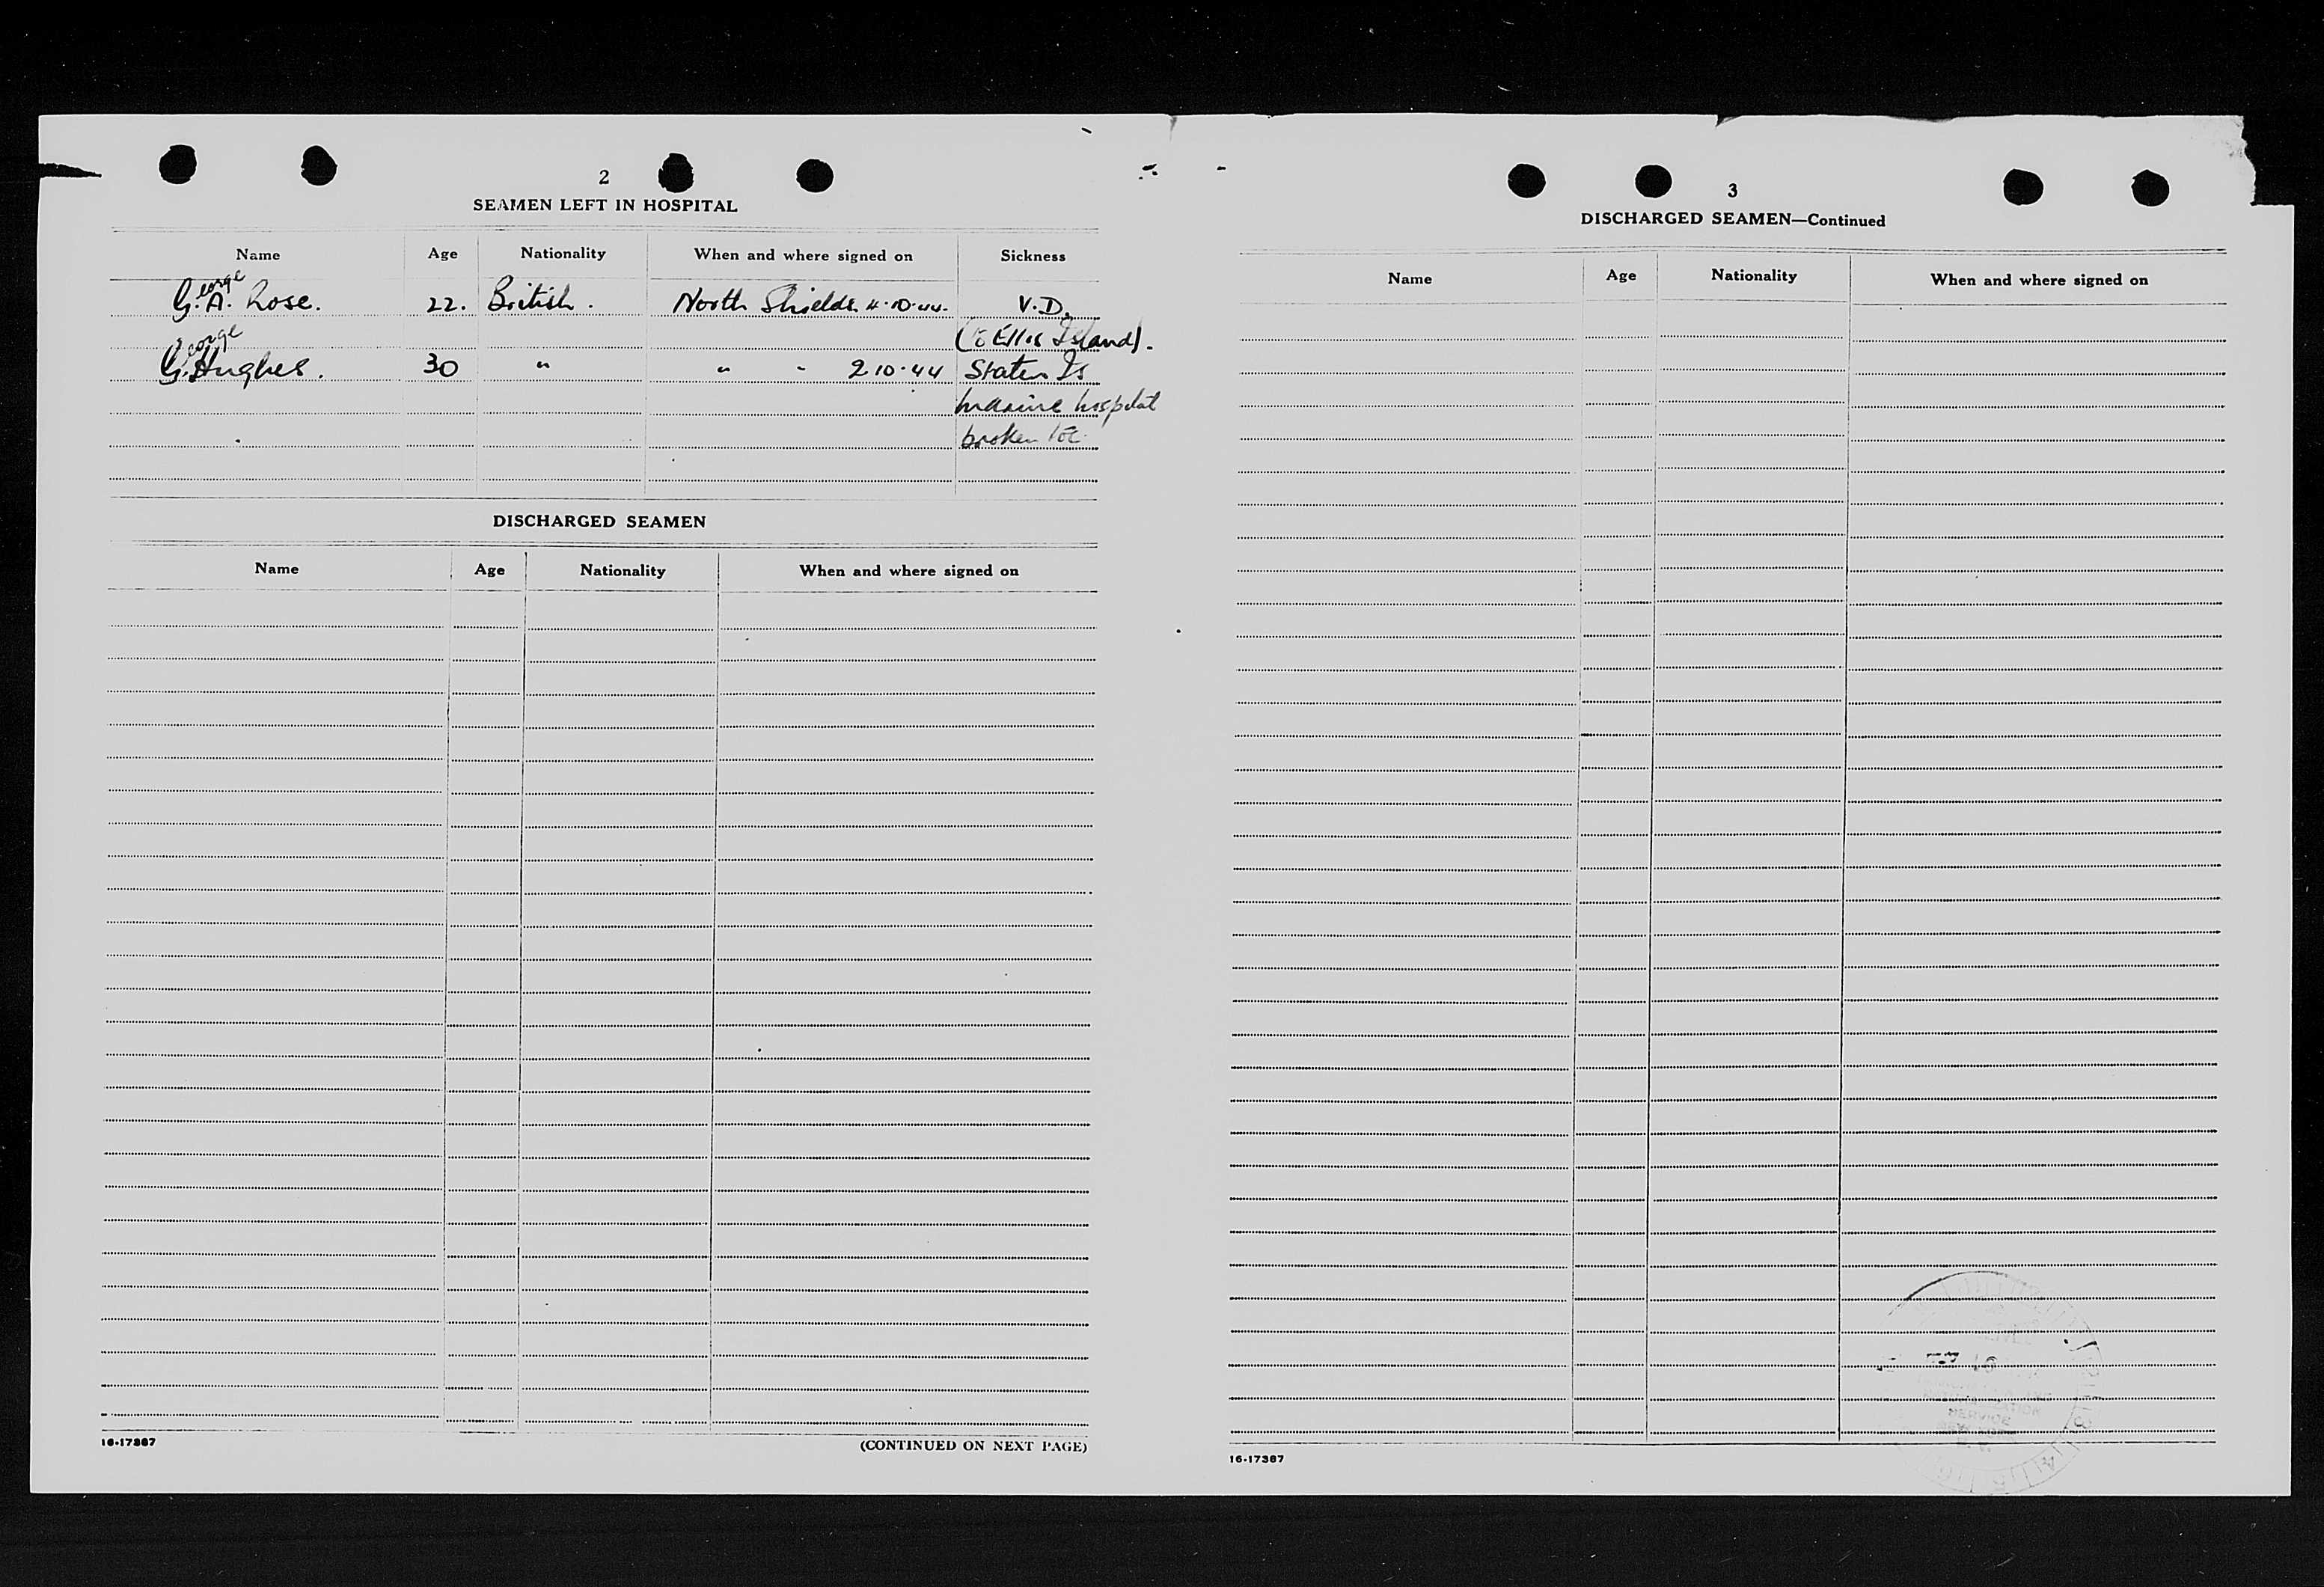 2
SEAMEN LEFT IN HOSPITAL
Name Age Nationality When and where signed on Sickness
eorge
G. A. Rose. 22. British. North Shields 4.10.44. V.D.
(to Ellis Island).
eorge
G. Hughes. 30 " " " 2 10.44 Staten Is
marine hospital
broken toe
DISCHARGED SEAMEN
Name Age Nationality When and where signed on
16-17387
(CONTINUED ON NEXT PAGE)
3
DISCHARGED SEAMEN—Continued
Name Age Nationality When and where signed on
SERVICE
16-17387